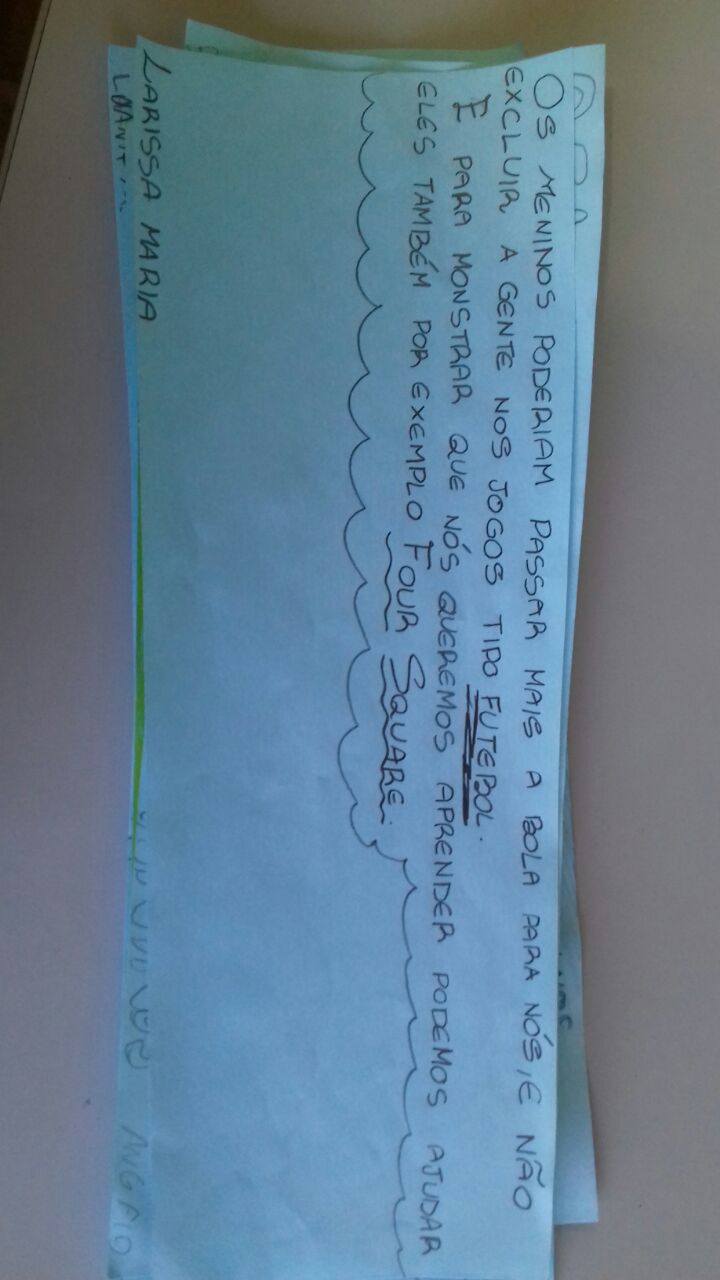 OS MENINOS PODERIAM PASSAR MAIS A BOLA PARA NÓS, E NÃO
EXCLUIR A GENTE NOS JOGOS TIPO FUTEBOL.
E PARA MONSTRAR QUE NÓS QUEREMOS APRENDER PODEMOS AJUDAR
ELES TAMBÉM POR EXEMPLO FOUR SQUARE.
LARISSA MARIA